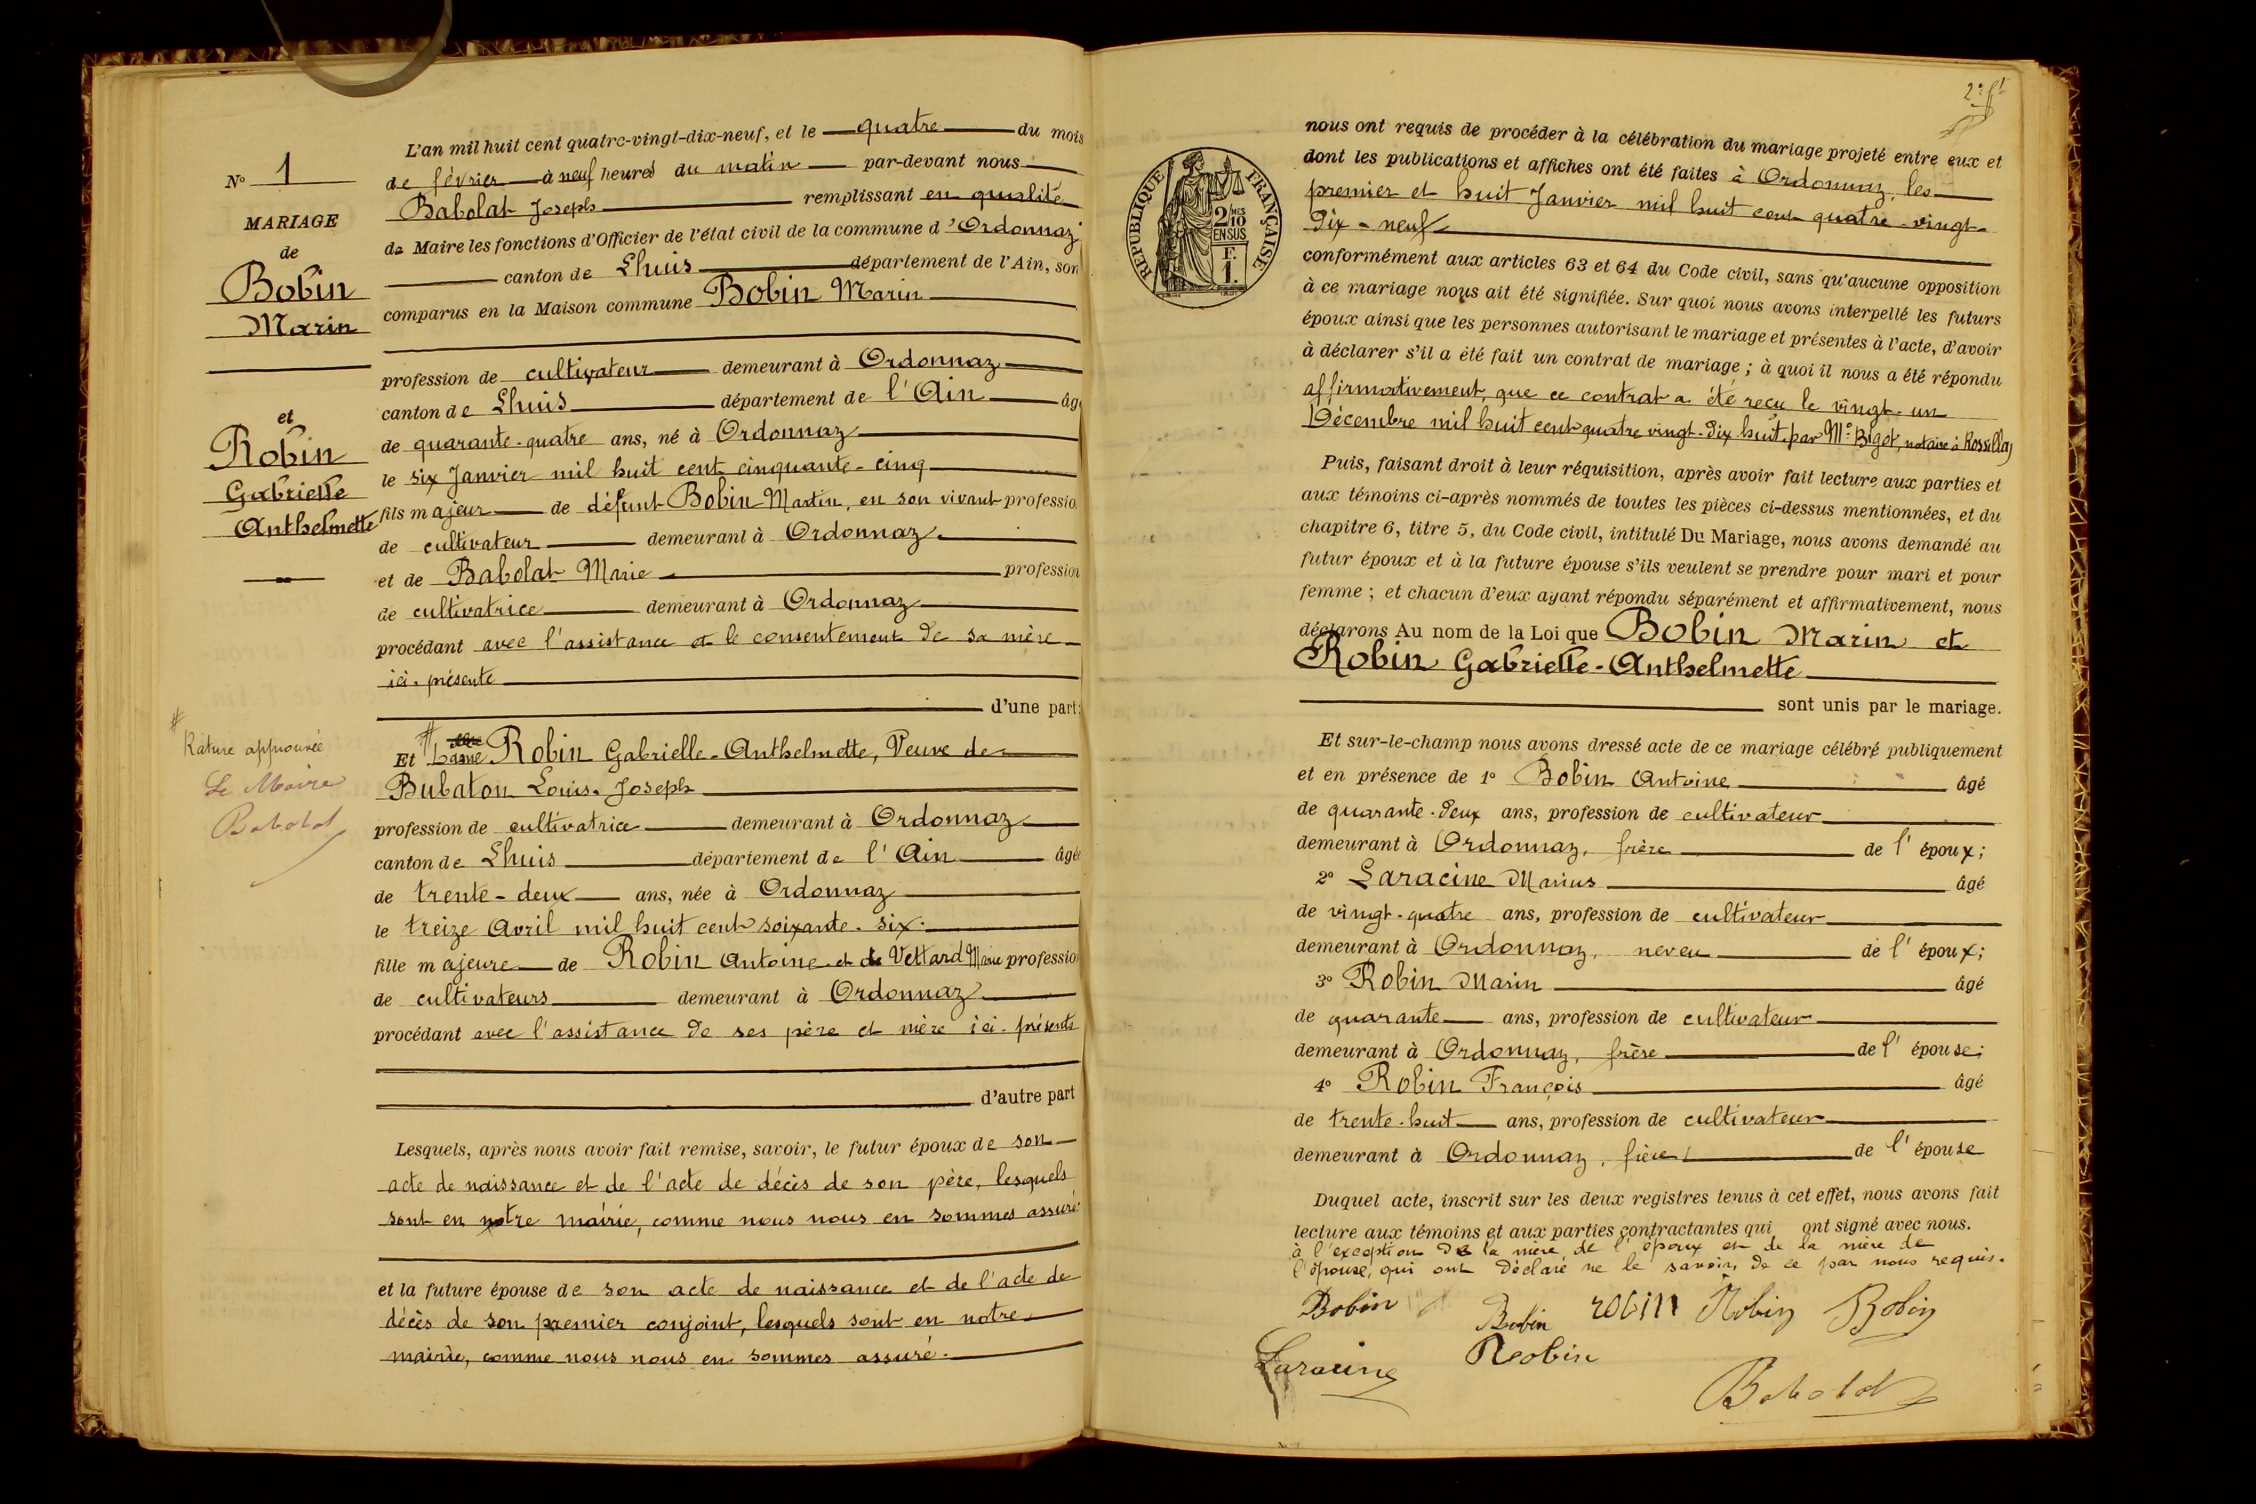 N° 1
MARIAGE
de
Bobin
Marin
et
Robin
Gabrielle
Anthelmette
Rature approuvée
Le Maire
Babolat
L'an mil huit cent quatre-vingt-dix-neuf, et le quatre du mois
de février à neuf heures du matin par-devant nous
Babolat Joseph remplissant en qualité
de Maire les fonctions d'Officier de l'état civil de la commune d'Ordonnaz
canton de Lhuis département de l'Ain, son
comparus en la Maison commune Bobin Marin
profession de cultivateur demeurant à Ordonnaz
canton de Lhuis département de l'Ain âg
de quarante-quatre ans, né à Ordonnaz
le six Janvier mil huit cent cinquante-cinq
fils majeur de défunt Bobin Martin, en son vivant professio
de cultivateur demeurant à Ordonnaz
et de Babolat Marie profession
de cultivatrice demeurant à Ordonnaz
procédant avec l'assistance et le consentement de sa mère
ici-présente
d'une part;
Et Dame Robin Gabrielle-Anthelmette, Veuve de
Bubaton Louis-Joseph
profession de cultivatrice demeurant à Ordonnaz
canton de Lhuis département de l'Ain âgée
de trente-deux ans, née à Ordonnaz
le treize Avril mil huit cent soixante-six
fille majeure de Robin Antoine et de Vettard Marie professio
de cultivateurs demeurant à Ordonnaz
procédant avec l'assistance de ses père et mère ici-présents
d'autre part
Lesquels, après nous avoir fait remise, savoir, le futur époux de son
acte de naissance et de l'acte de décès de son père, lesquels
sont en notre mairie, comme nous nous en sommes assuré
et la future épouse de son acte de naissance et de l'acte de
décès de son premier conjoint, lesquels sont en notre
mairie, comme nous nous en sommes assuré.
2e ft
RÉPUBLIQUE FRANÇAISE
2/10
EN SUS
F.
1.
nous ont requis de procéder à la célébration du mariage projeté entre eux et
dont les publications et affiches ont été faites à Ordonnaz, les
premier et huit Janvier mil huit cent quatre-vingt-
dix-neuf
conformément aux articles 63 et 64 du Code civil, sans qu'aucune opposition
à ce mariage nous ait été signifiée. Sur quoi nous avons interpellé les futurs
époux ainsi que les personnes autorisant le mariage et présentes à l'acte, d'avoir
à déclarer s'il a été fait un contrat de mariage; à quoi il nous a été répondu
affirmativement, que ce contrat a été reçu le vingt-un
Décembre mil huit cent quatre vingt-dix huit par Me Bigot, notaire à Rossillon
Puis, faisant droit à leur réquisition, après avoir fait lecture aux parties et
aux témoins ci-après nommés de toutes les pièces ci-dessus mentionnées, et du
chapitre 6, titre 5, du Code civil, intitulé Du Mariage, nous avons demandé au
futur époux et à la future épouse s'ils veulent se prendre pour mari et pour
femme; et chacun d'eux ayant répondu séparément et affirmativement, nous
déclarons Au nom de la Loi que Bobin Marin et
Robin Gabrielle-Anthelmette
sont unis par le mariage.
Et sur-le-champ nous avons dressé acte de ce mariage célébré publiquement
et en présence de 1° Bobin Antoine âgé
de quarante-deux ans, profession de cultivateur
demeurant à Ordonnaz, frère de l'époux;
2° Laracine Marius âgé
de vingt-quatre ans, profession de cultivateur
demeurant à Ordonnaz, neveu de l'époux;
3° Robin Marin âgé
de quarante ans, profession de cultivateur
demeurant à Ordonnaz, frère de l'épouse;
4° Robin François âgé
de trente-huit ans, profession de cultivateur
demeurant à Ordonnaz, frère de l'épouse
Duquel acte, inscrit sur les deux registres tenus à cet effet, nous avons fait
lecture aux témoins et aux parties contractantes qui ont signé avec nous.
à l'exception de la mère de l'époux et de la mère de
l'épouse, qui ont déclaré ne le savoir, de ce par nous requis.
Bobin Bobin robin Robin Bobin
Laracine Robin
Babolat